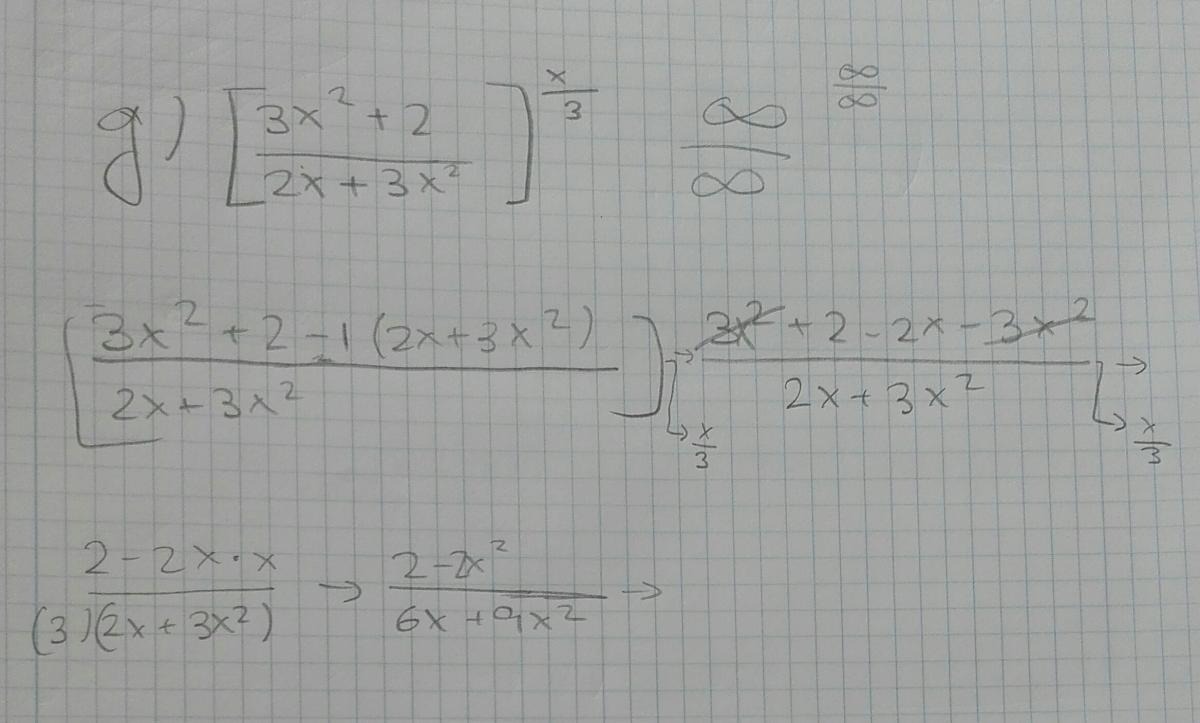 g) [(3x² + 2)/(2x + 3x²)]^(x/3) ∞/∞ ^(∞/∞)
[(3x² + 2 - 1 (2x + 3x²))/(2x + 3x²)] → x/3 → (3x² + 2 - 2x - 3x²)/(2x + 3x²) → x/3 →
(2 - 2x · x)/((3)(2x + 3x²)) → (2 - 2x²)/(6x + 9x²) →